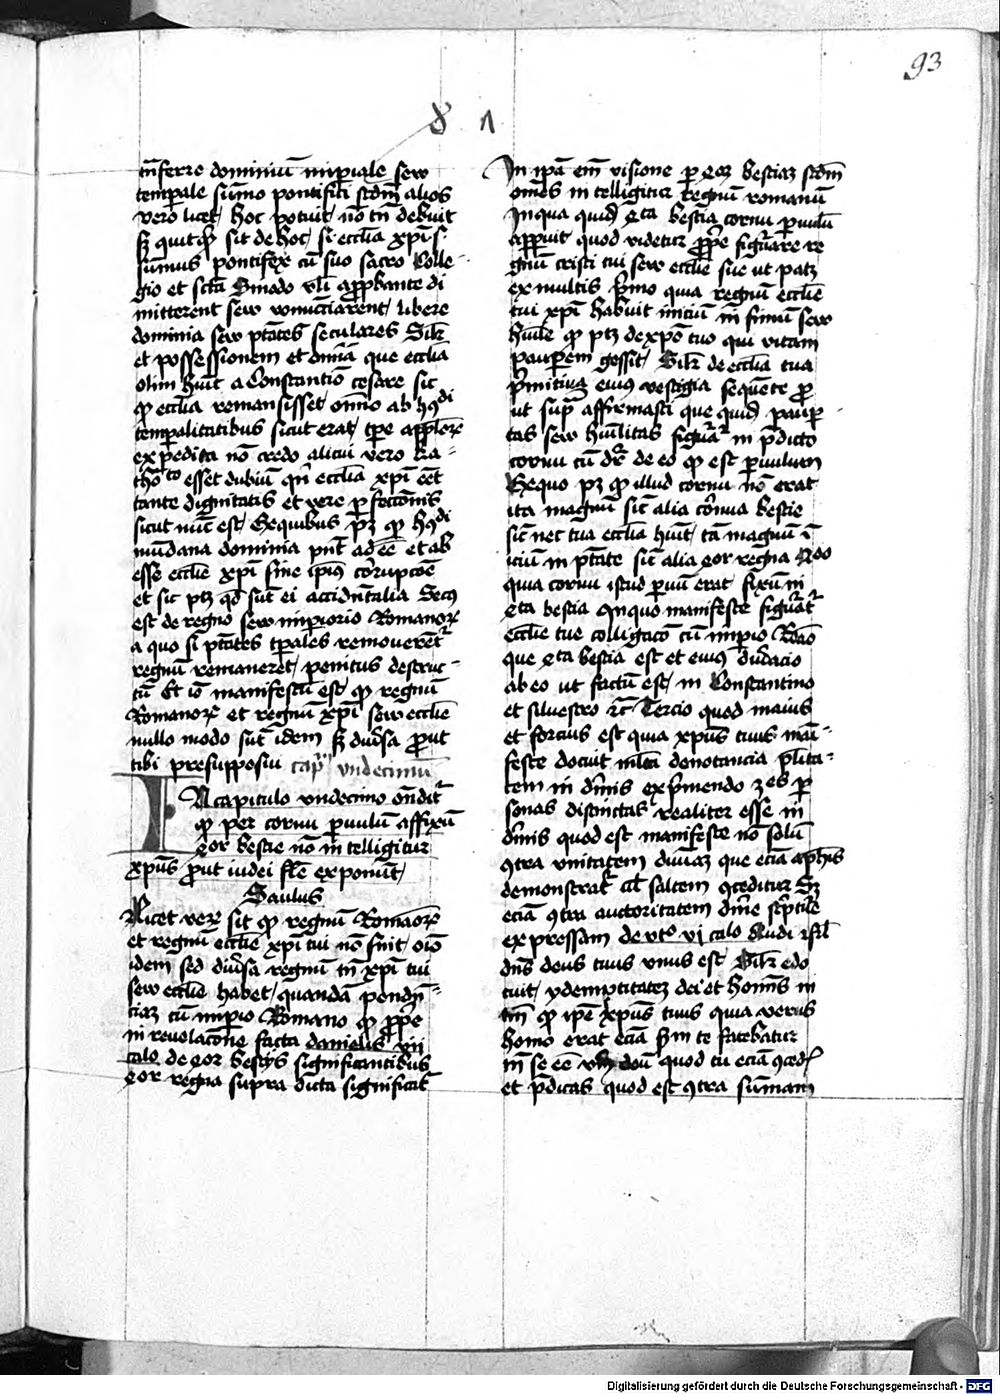 93
8 1
tn̄ferre dominiū imperiale sew
temꝑale sūmo pontifici scdm̄ alios
vero licet hoc potuit nō tn̄ debuit
sꝫ quitqͥd sit de hoc si ecclīa xpī s
sūmus pontifex cū suo sacro Colle-
gio et Sinodo vl̄i approbante di
mitterent sew renūciarent libere
dominia sew ptātes seculares Silꝛ
et possessionem et omniā que ecclīa
olim hūit a Constantīo cesare sic
ꝙ ecclīa remansisset omīo ab hꝯdi
temꝑalitatibus sicut erat tꝑe apl̄oꝝ
expedita nō credo alicui vero Ka-
thōco esset dubiū qn̄ ecclīa xpī eēt
tante dignitatis et vere ꝑfectōnis
sicut nūc est Ex quibus pꝫ ꝙ hꝯdi
mūdana dominia ad eē et ab
esse ecclīe xpī sine ipiꝰ corrupcōe
et sic ptꝫ qd sūt ei accidn̄talia Secꝰ
est de regno sew imperio Romanoꝝ
a quo si ptātes tꝑales removerēt
regnū remaneret penitus destruc-
tū Et iō manifestū est ꝙ regnū
Romanoꝝ et regnū xpī sew ecclīe
nullo modo sūt idem sꝫ diūsa prout
tibi presupposui capᵐ undecimū
IN capitulo undecimo ōnditꝛ
ꝙ per cornu parvulū affixū
qor bestie nō intelligitur
xpūs prout iudei exponūt
Saulus
Licet veꝝ sit ꝙ regnū Romaoꝝ
et regnū ecclīe xpī tui nō sint oīo
idem sed diūsa regnū tn̄ xpī tui
sew ecclīe habet quandā pendn̄-
ciaꝫ cū imperio Romano ꝙ proprie
in revelacōne facta danielis vii
calo de qor bestijs significantibus
qor regna supra dicta significat
In ipā em̄ visione per qor bestiaꝫ scdm̄
omēs intelligitur regnū romanū
In qua quid qta bestia cornu parvulū
apparuit quod videtur proprie figurare re
gnū cristi tui sew ecclīe sue ut patꝫ
ex multis primo quia regnū ecclīe
tui xpī habuit iniciū infimū sew
hūile ꝙ ptꝫ de xpō tuo qui vitam
pauperem gessit Silꝛ de ecclīa tua
primitiva eiuꝰ vestigia sequente pro
ut supra affirmasti que quid paupꝛ
tas sew hūilitas figuratꝛ in predicto
cornu cū dr̄ de eo ꝙ est parvulum
Ex quo pꝫ ꝙ illud cornu nō erat
ita magnū sic̄ alia cornua bestie
sic̄ nec tua ecclīa hūit tā magnū ī
iciū in ptāte sic̄ alia qor regna Scdo
quia cornu istud parvū erat fixū in
qta bestia In quo manifeste figuratꝛ
ecclīe tue colligacō cū imperio Roāo
que qta bestia est et eiuꝰ dotacio
ab eo ut factū est in Constantino
et silvestro rc̄ Tercio quod maius
et forcius est quia xpūs tuus mani-
feste docuit multa denotancia plita-
tem in divinis exprimendo 3es per
sonas distinctas realiter esse in
divinis quod est manifeste nō solū
ꝯtra unitatem divinaꝫ que eciā a ph̄is
demonstratꝛ vl saltem ꝯceditur Sꝫ
eciā ꝯtra auctoritatem divine scripture
expressam deuto vj calo Audi isrl
dn̄s deus tuus unus est Silꝛ edo
cuit ydemptitateꝫ dei et hominis in
tm̄ ꝙ ipe xpūs tuus quia verus
homo erat eciā scdm te fatebatur
in se eē deū quod tu eciā ꝯcedꝭ
et predicas quod est ꝯtra sūmam
Digitalisierung gefördert durch die Deutsche Forschungsgemeinschaft - DFG